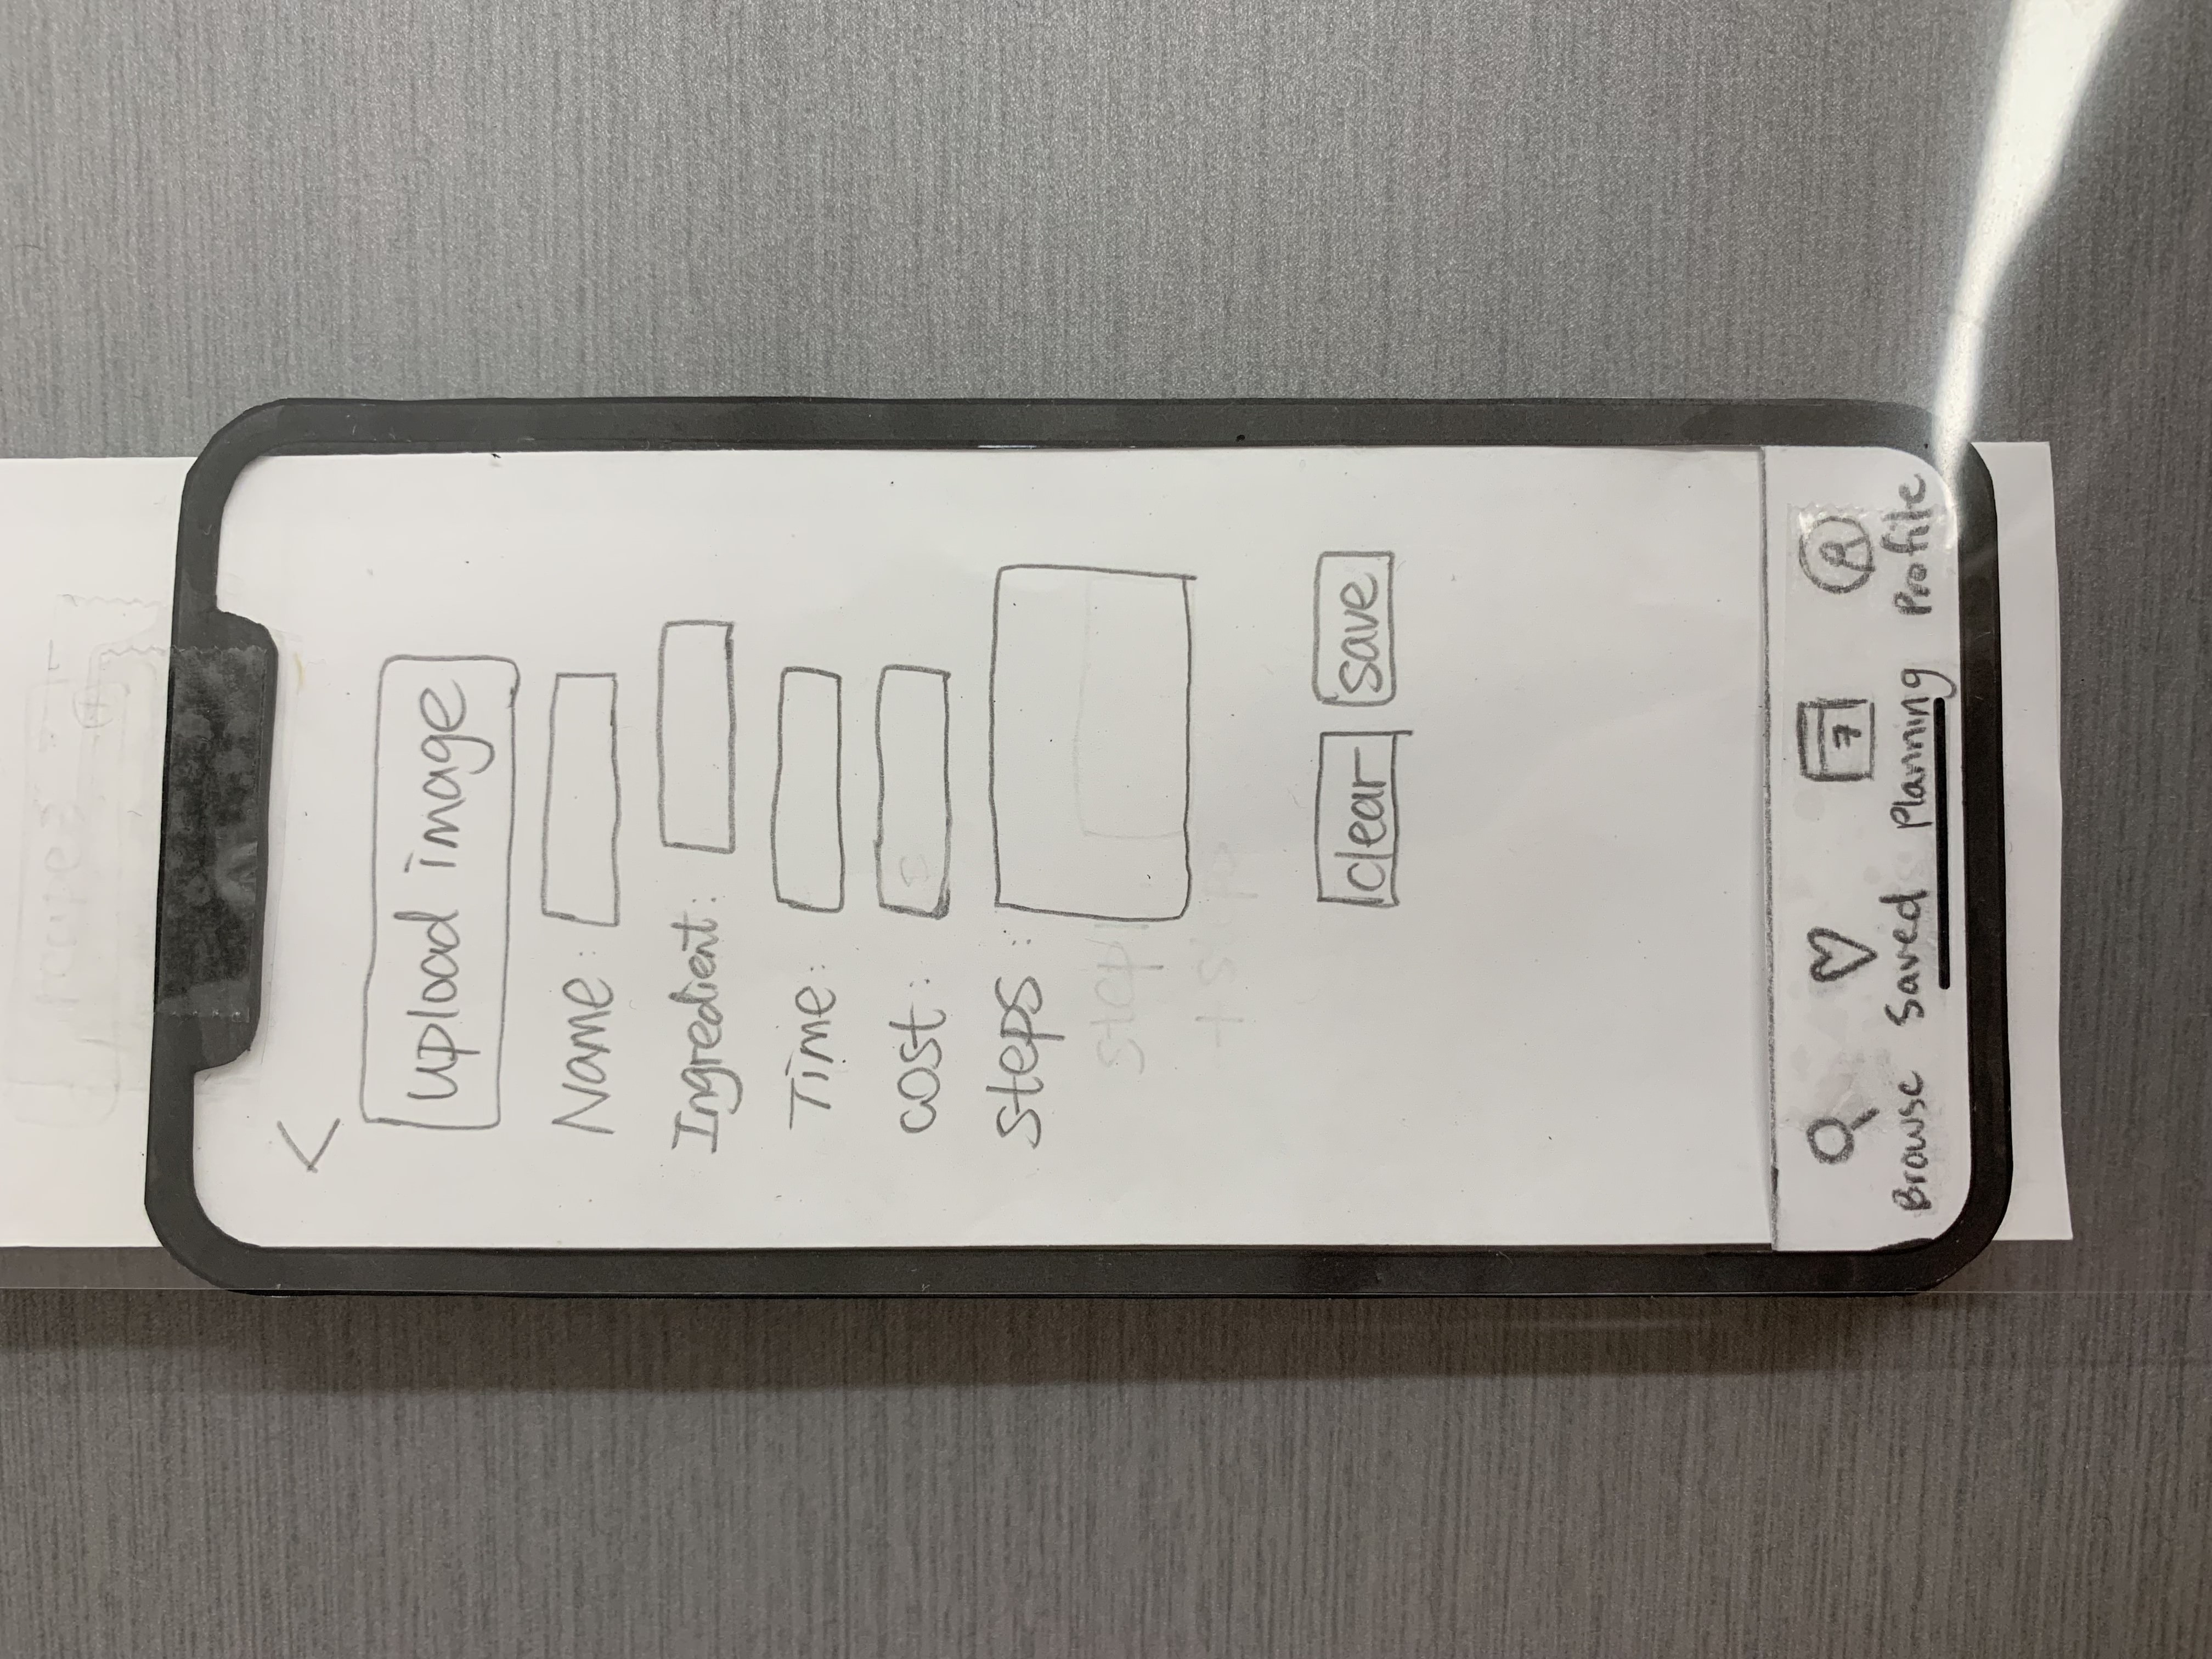 <
upload image
Name:
Ingredient:
Time:
cost:
steps:
step1
+ steps
clear save
7
Browse Saved Planning Profile